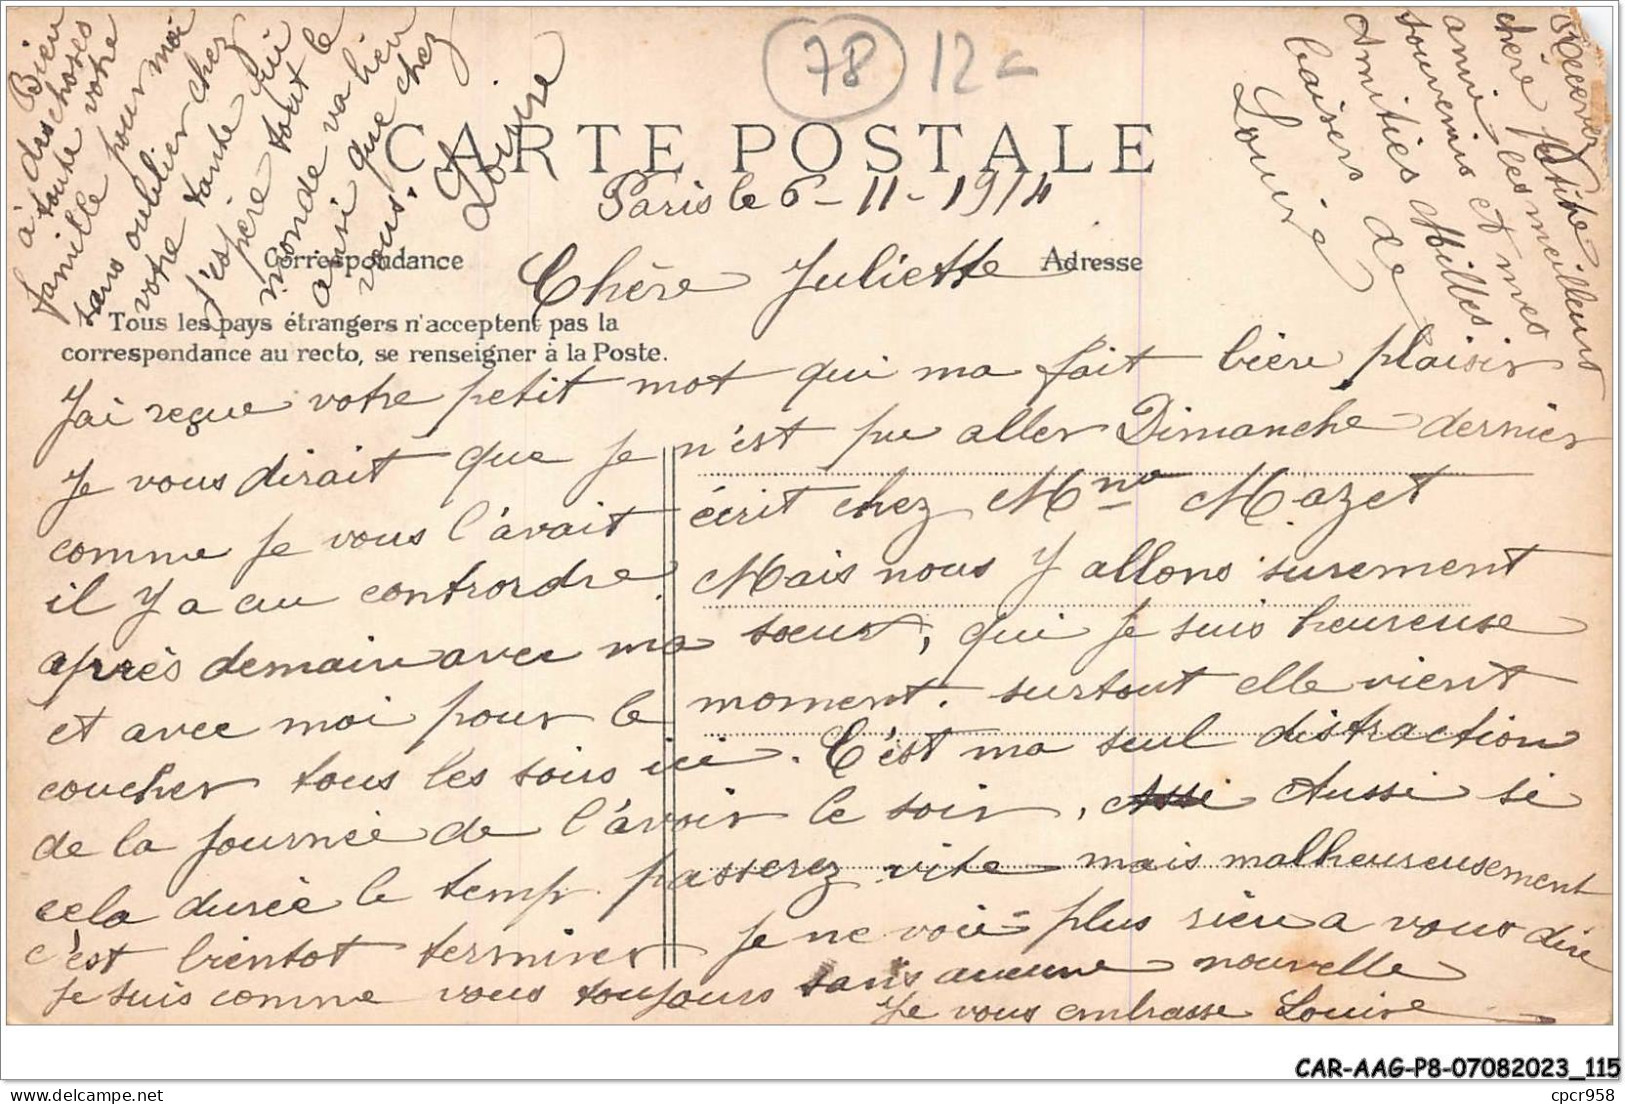 78 12€
CARTE POSTALE
Paris le 6-11-1914
Correspondance
Adresse
Chère Juliette
Tous les pays étrangers n'acceptent pas la
correspondance au recto, se renseigner à la Poste.
J'ai reçue votre petit mot qui ma fait bière plaisir
Je vous dirait que je n'est pu aller Dimanche dernier
comme je vous l'avait écrit chez Mme Mazet
il y a au contrordre. Mais nous y allons surement
après demain avec ma soeur, qui je suis heureuse
et avec moi pour le moment. surtout elle vient
coucher tous les soirs ici. C'est ma seul distraction
de la journeé de l'avoir le soir, Aussi si
cela dureé le temp passerez vite mais malheureusement
c'est bientot terminer je ne voie plus rien a vous dire
je suis comme vous toujours sans aucune nouvelle
Je vous embrasse Louise
Bien
à des choses
toute votre
famille pour moi
sans oublier chez
votre tante qui
j'espère tout le
monde va bien
ainsi que chez
vous.
Louise
Recevez
chère petite
amie les meilleurs
souvenirs et mes
Amitiés Milles
baisers de
Louise
CAR-AAG-P8-07082023_115
cpcr958